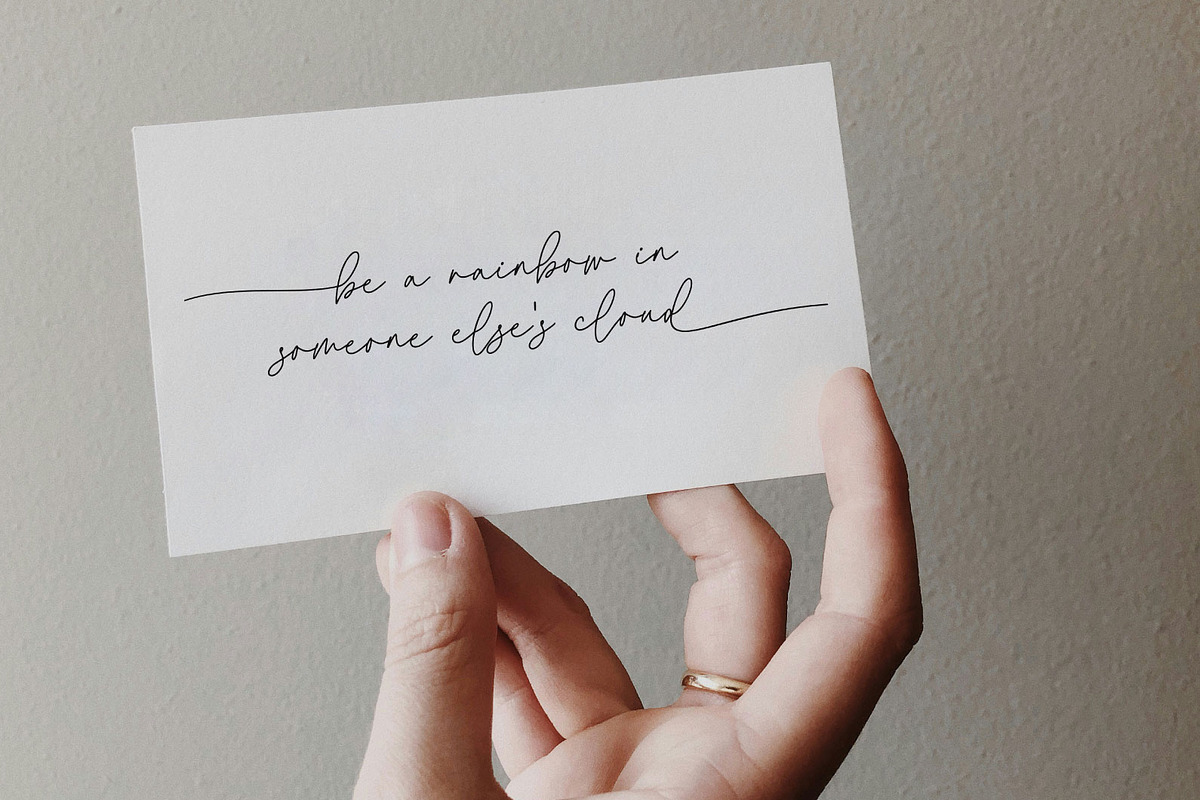 be a rainbow in
someone else's cloud